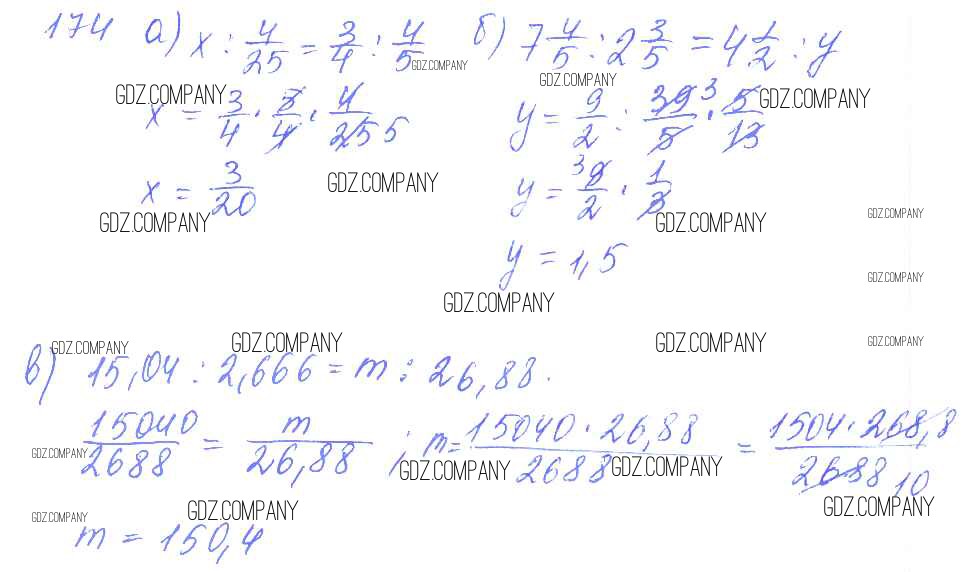 174 а) x : 4/25 = 3/4 : 4/5 б) 7 4/5 : 2 3/5 = 4 1/2 : y
GDZ.COMPANY GDZ.COMPANY
GDZ.COMPANY GDZ.COMPANY
x = 3/4 · 5/4 · 4/25 5 y = 9/2 : 39/5 3 · 5/13
x = 3/20 GDZ.COMPANY y = 3 9/2 · 1/3
GDZ.COMPANY GDZ.COMPANY GDZ.COMPANY
y = 1,5 GDZ.COMPANY
GDZ.COMPANY
GDZ.COMPANY GDZ.COMPANY GDZ.COMPANY GDZ.COMPANY
в) 15,04 : 2,666 = m : 26,88.
15040/2688 = m/26,88 ; m = 15040 · 26,88/2688 = 1504 · 268,8/2688 10
GDZ.COMPANY GDZ.COMPANY GDZ.COMPANY
GDZ.COMPANY GDZ.COMPANY GDZ.COMPANY
m = 150,4